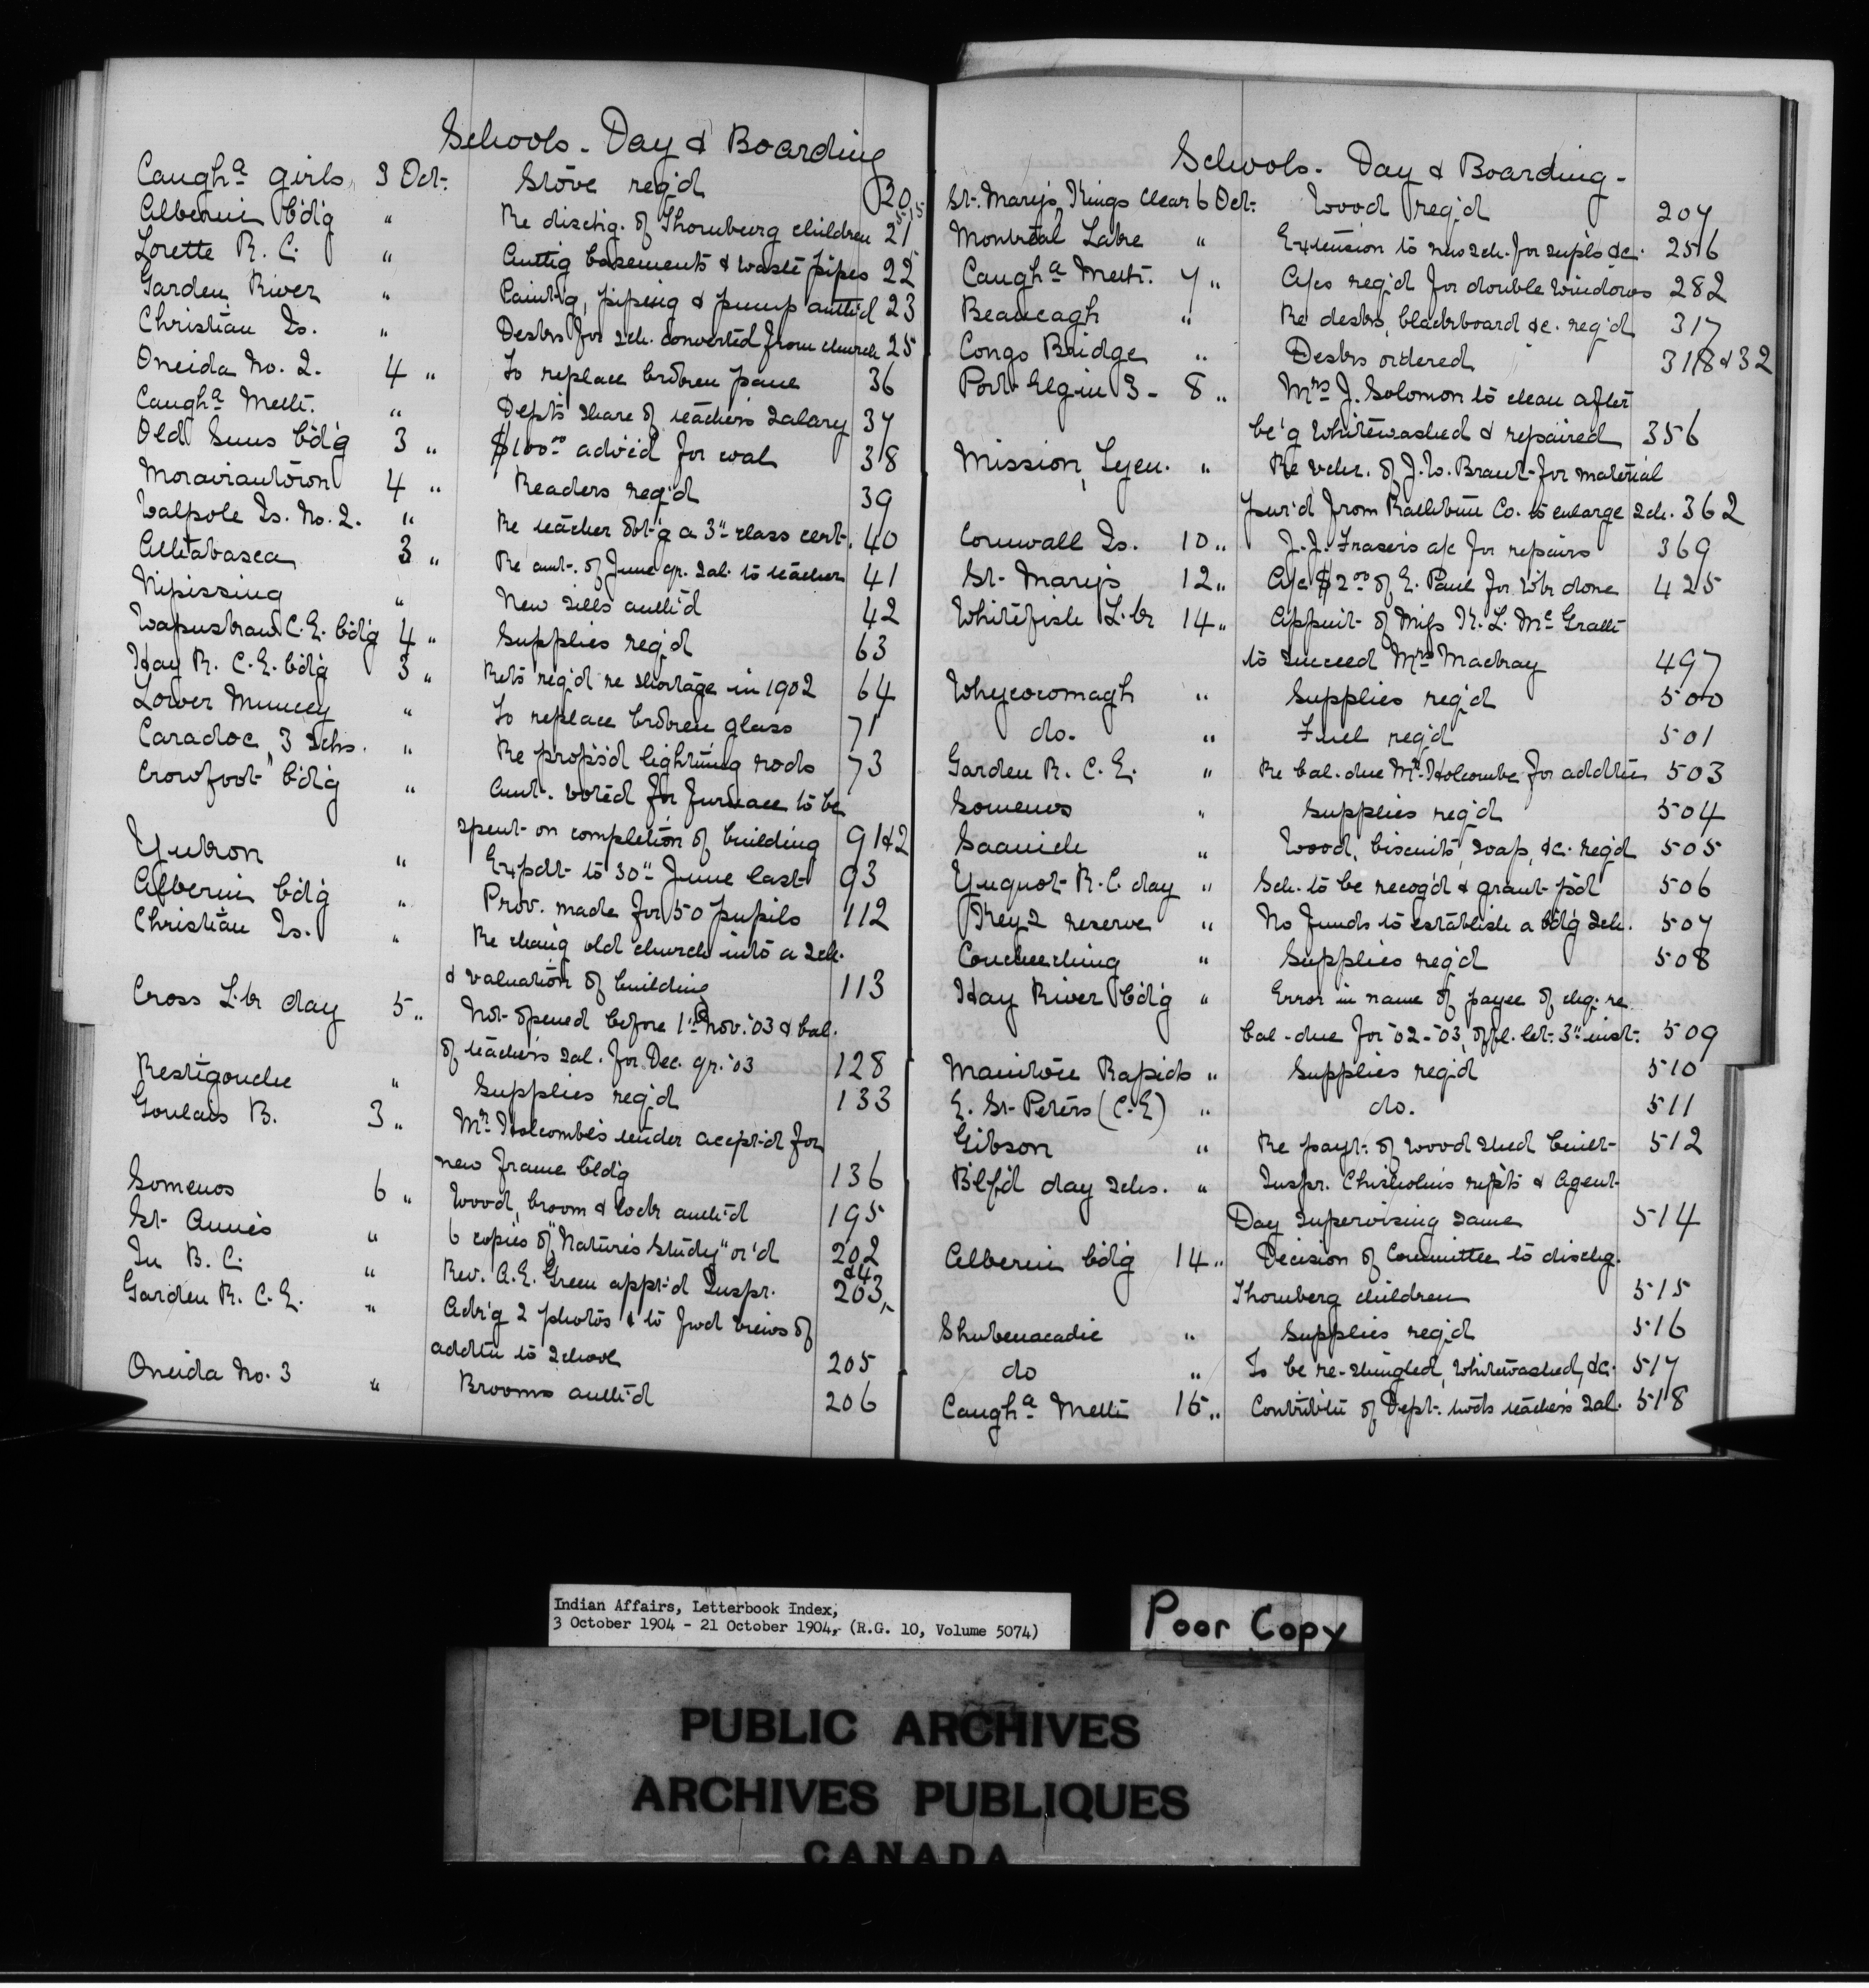 Schools - Day & Boarding
Caugha girls 3 Oct. Stove req'd 20
Alberni b'd'g " Re dischg. of Thornburg children 21
Lorette R. C. " basements & waste pipes 22
Garden River " Paint'g, piping & pump auth'd 23
Christian Is. " Desks for sch. converted from church 25
Oneida No. 2. 4 " To replace broken pane 36
Caugha Meth. " Dept's share of teacher's salary 37
Old Suns b'd'g 3 " $100.00 adv'd for coal 38
Moraviantown 4 " Readers req'd 39
Walpole Is. No. 2. " Re teacher obt'g a 3" class cert. 40
Athabasca 3 " Re amt. of June qr. sal. to teacher 41
Nipissing " New sills auth'd 42
Wapuskaw C.E. b'd'g 4 " Supplies req'd 63
Hay R. C.E. b'd'g 3 " Rets req'd re shortage in 1902 64
Lower Muncey " To replace broken glass 71
Caradoc, 3 schs. " Re propos'd lightning rods 73
Crowfoot b'd'g " Amt. voted for furnace to be
spent on completion of building 91&2
Yukon " Expdt to 30" June last 93
Alberni b'd'g " Prov. made for 50 pupils 112
Christian Is. " Re chang old church into a sch.
& valuation of building 113
Cross L'k day 5 " Not opened before 1" Nov. '03 & bal.
of teacher's sal. for Dec. qr. '03 128
Restigouche " Supplies req'd 133
Goulais B. 3 " Mr. Holcombe's tender accept'd for
new frame bld'g 136
Somenos 6 " Wood, broom & lock auth'd 195
St. Anne's " 6 copies of "Nature's Study" or'd 202
In B. C. " Rev. A.E. Green appt'd Inspr. 203 &4
Garden R. C. E. " Ack'g 2 photos & to fwd views of
addtn to school 205
Oneida No. 3 " Brooms auth'd 206
Schools - Day & Boarding -
St. Mary's, Kings clear 6 Oct. Wood req'd 207
Montreal Lake " Extension to new sch. for supls &c. 256
Caugha Meth. 7 " A/cs req'd for double windows 282
Beaucagh " Re desks, blackboard &c. req'd 317
Congo Bridge " Desks ordered 318 & 32
Port Elgin 3 - 8 " Mrs J. Solomon to clean after
be'g whitewashed & repaired 356
Mission, Tyen. " Re vchr. of J. W. Brant for material
pur'd from Rathbun Co. to enlarge sch. 362
Cornwall Is. 10 " J.J. Fraser's a/c for repairs 369
St. Mary's 12 " A/c $2.00 of E. Paul for w'k done 425
Whitefish L'k 14 " Appnt. of Miss K. L. McGrath
to succeed Mrs Mackay 497
Whycocomagh " Supplies req'd 500
do. " Fuel req'd 501
Garden R. C. E. " Re bal. due Mr. Holcombe for addtn 503
Somenos " Supplies req'd 504
Saanich " Wood, biscuits, soap, &c. req'd 505
Yuquot R.C. day " Sch. to be recog'd & grant p'd 506
Key's reserve " No funds to establish a b'd'g sch. 507
Coucheeching " Supplies req'd 508
Hay River b'd'g " Error in name of payee of chq. re
bal. due for '02-'03, offl. let. 3" inst. 509
Manitou Rapids " Supplies req'd 510
E. St. Peters (C.E) " do. 511
Gibson " Re payt. of wood shed built 512
B'tf'd day schs. " Inspr. Chisholm's rep'ts & Agent
Day supervising same 514
Alberni b'd'g 14 " Decision of Committee to dischg.
Thornberg children 515
Shubenacadie " Supplies req'd 516
do " To be re-shingled, whitewashed, &c. 517
Caugha Meth 15 " Contributn of Dept. tw'ds teacher's sal. 518
Indian Affairs, Letterbook Index,
3 October 1904 - 21 October 1904, (R.G. 10, Volume 5074)
Poor Copy
PUBLIC ARCHIVES
ARCHIVES PUBLIQUES
CANADA